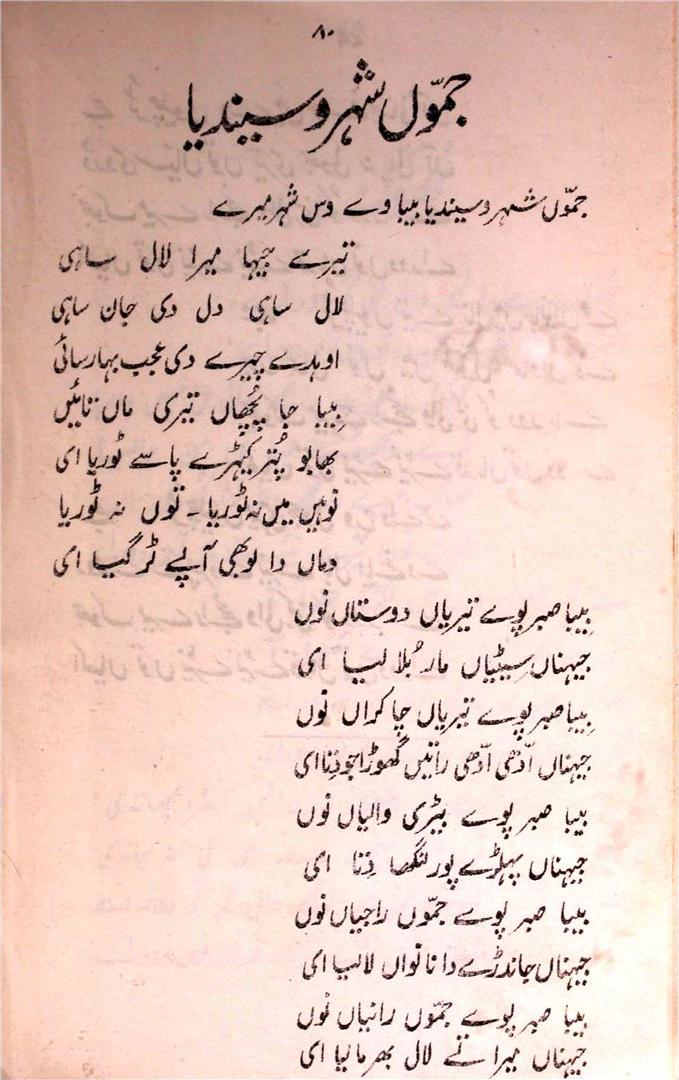 ۸۰
جمّوں شہر وسیندیا
جمّوں شہر وسیندیا بیبا وے وس شہر میرے
تیرے جیہا میرا لال ساہی
لال ساہی دل دی جان ساہی
اوہدے چیرے دی عجب بہار سائی
بِیبا جا پُچھاں تیری ماں تائیں
بھابو پُتر کیہڑے پاسے ٹوریا ای
نوہیں میں نہ ٹوریا۔ توں نہ ٹوریا
دماں دا لوبھی آپے ٹر گیا ای
بِیبا صبر پوے تیریاں دوستاں نوں
جیہناں سِیٹیاں مار بُلا لیا ای
بِیبا صبر پوے تیریاں چاکراں نوں
جیہناں ادّھی ادّھی راتیں گھوڑا جو دِتا ای
بیبا صبر پوے بیڑی والیاں نوں
جیہناں پہلڑے پور لنگھا دِتا ای
بیبا صبر پوے جمّوں راجیاں نوں
جیہناں چاندڑے دا نانواں لا لیا ای
بیبا صبر پوے جمّوں رانیاں نوں
جیہناں میرا تے لال بھرما لیا ای